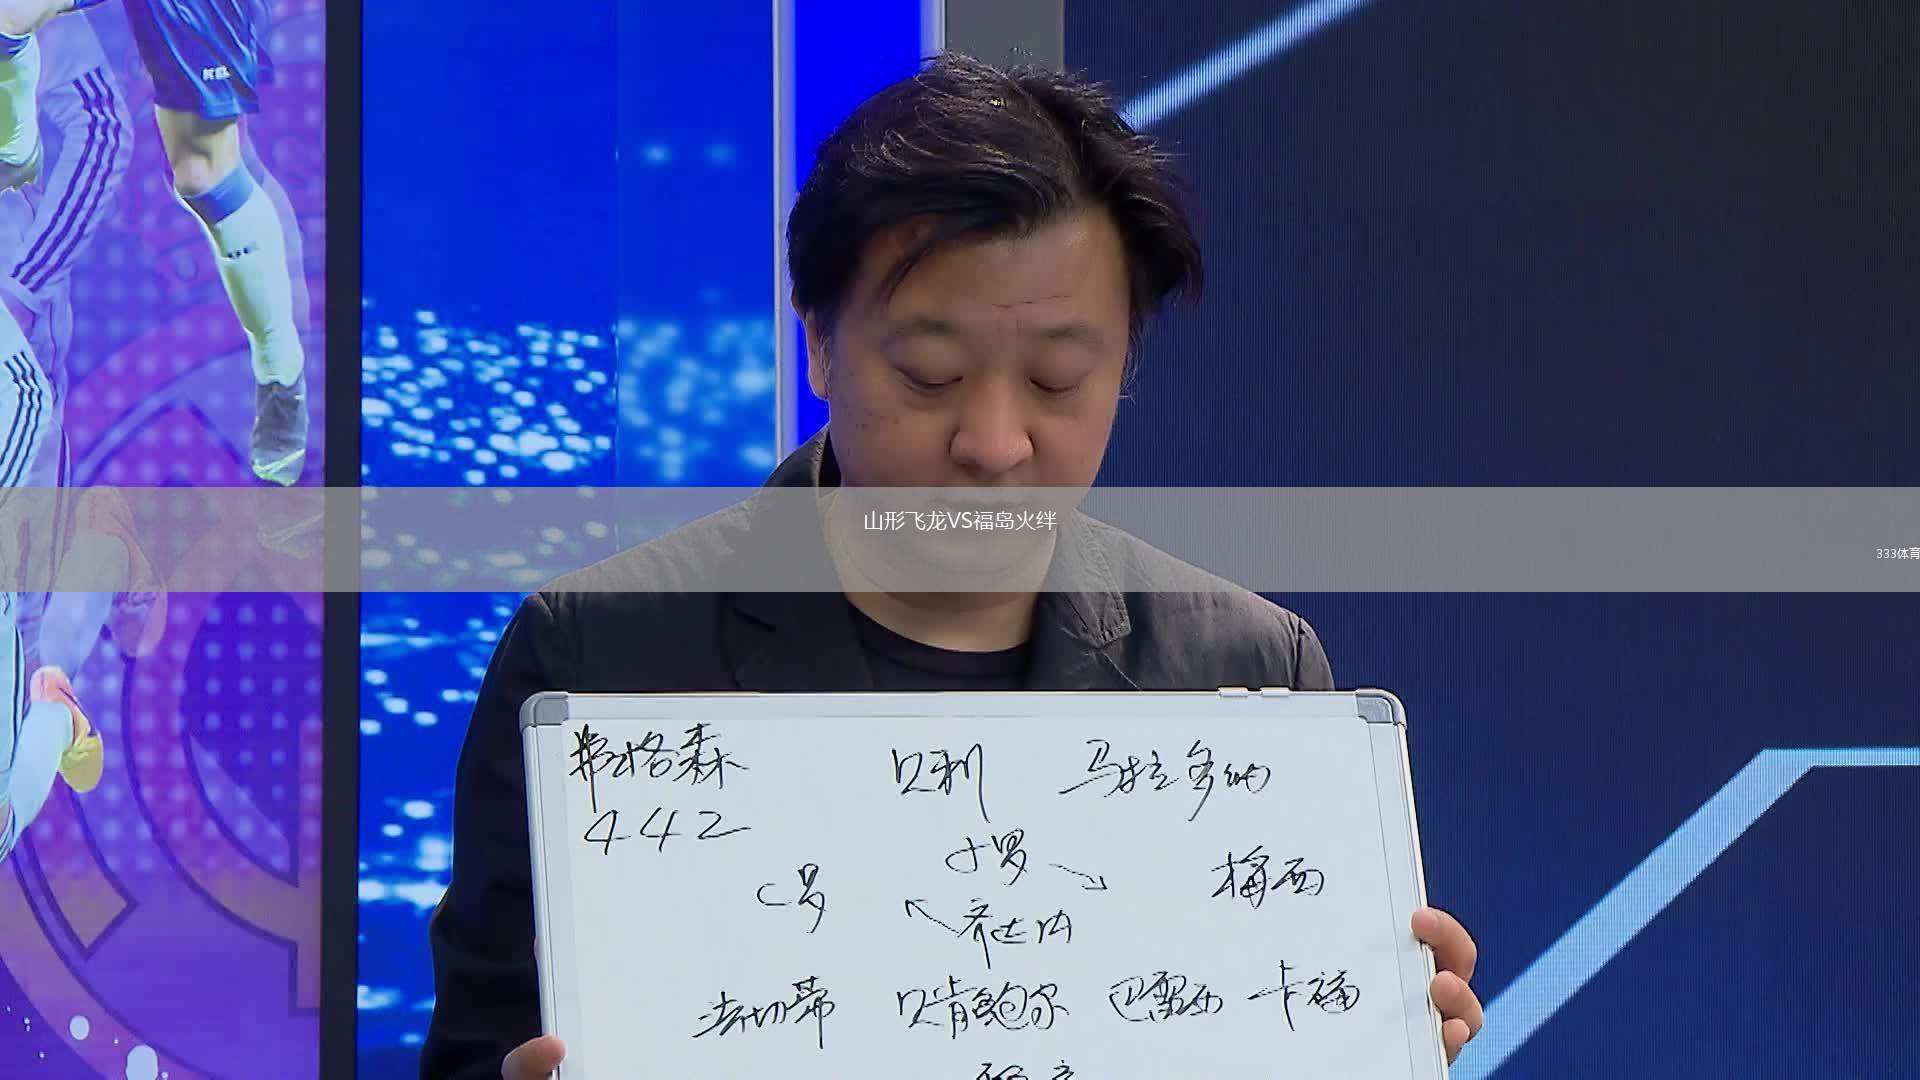 山形飞龙VS福岛火绊
333体育
弗格森
贝利 马拉多纳
442
小罗
C罗 梅西
齐达内
法切蒂 贝肯鲍尔 巴雷西 卡福